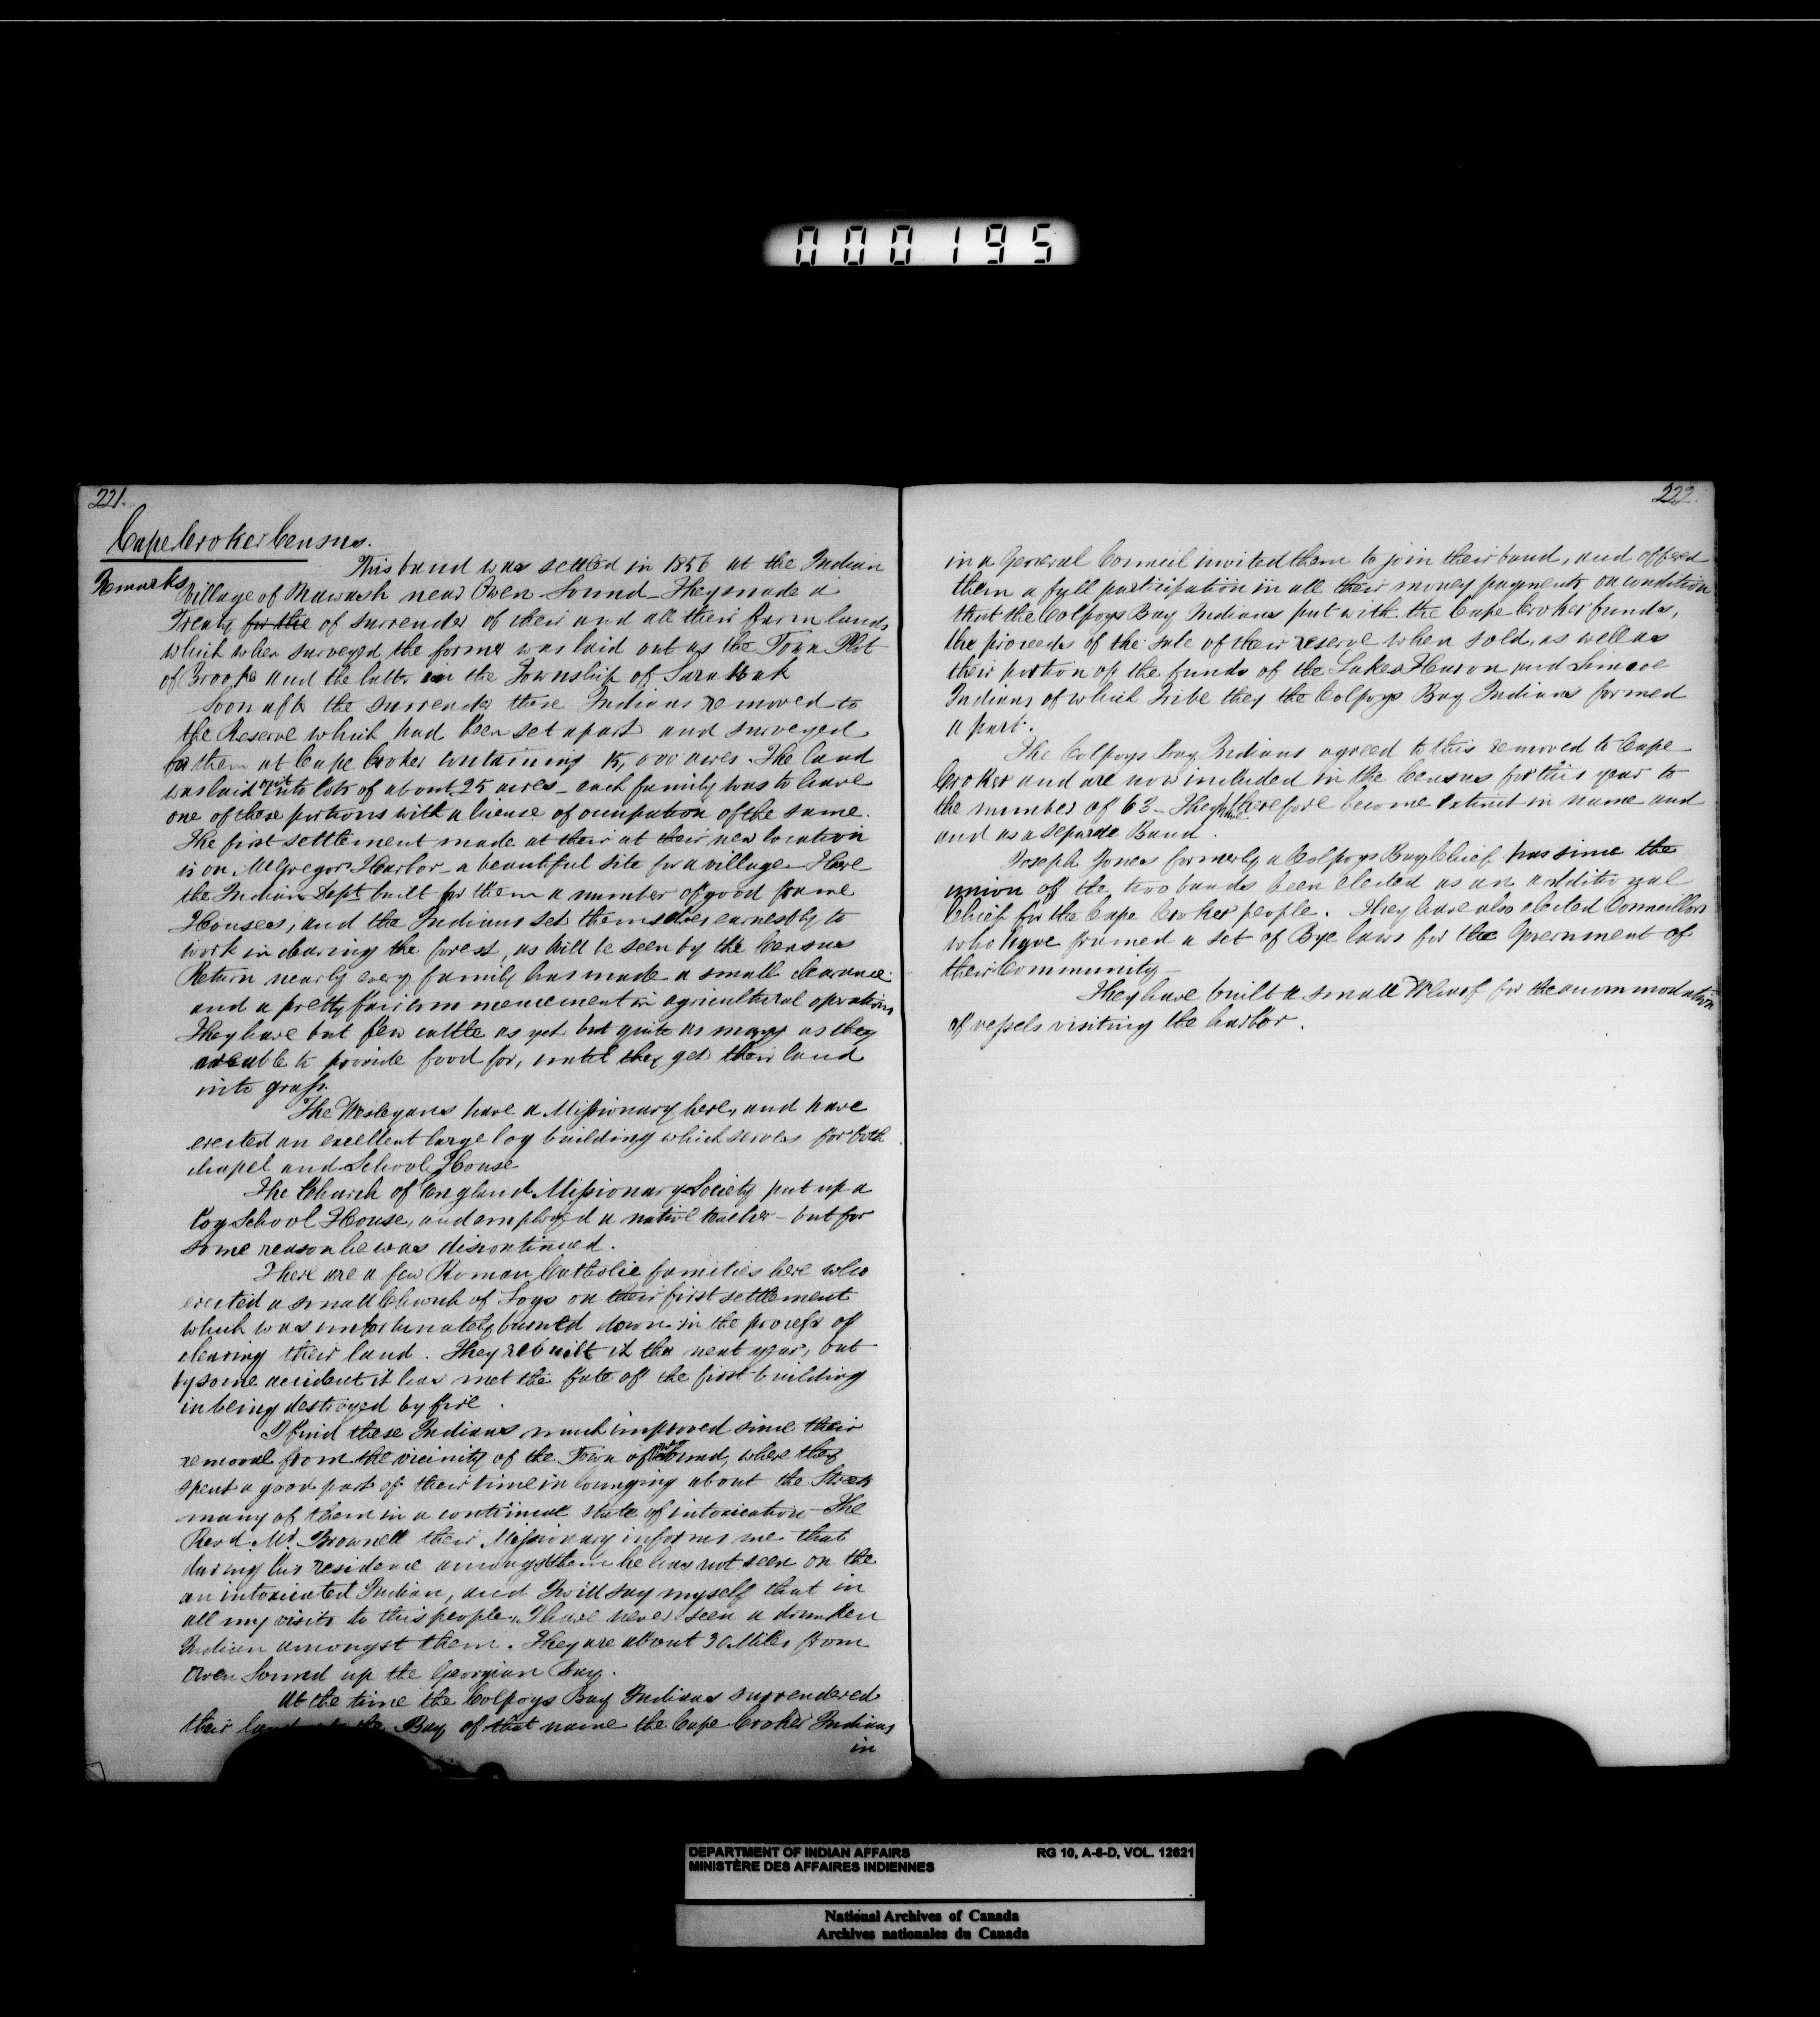 000195
221.
Cape Croker Census.
Remarks
This band was settled in 1856 at the Indian
Village of Nawash near Owen Sound – They made a
Treaty for the of surrender of their and all their farm lands
which when surveyed the former was laid out as the Town Plot
of Brooke and the latter in the Township of Sarawak
Soon after the surrender these Indians removed to
the Reserve which had been set apart and surveyed
for them at Cape Croker containing 15,000 acres. The land
was laid out into lots of about 25 acres – each family was to have
one of these portions with a license of occupation of the same.
The first settlement made at their at their new location
is on McGregor Harbor – a beautiful site for a village – Here
the Indian Dept. built for them a number of good frame
Houses, and the Indians set themselves earnestly to
work in clearing the forest, as will be seen by the Census
Return nearly every family has made a small clearance
and a pretty fair commencement in agricultural operations
They have but few cattle as yet but quite as many as they
are able to provide food for, until they get their land
into grass.
The Wesleyans have a Missionary here, and have
erected an excellent large log building which serves for both
chapel and School House
The Church of England Missionary Society put up a
log School House, and employed a native teacher – but for
some reason he was discontinued.
There are a few Roman Catholic families here who
erected a small Church of Logs on their first settlement
which was unfortunately burned down in the process of
clearing their land. They rebuilt it the next year, but
by some accident it has met the fate of the first building
in being destroyed by fire.
I find these Indians much improved since their
removal from the vicinity of the Town of Owen Sound, where they
spent a good part of their time in lounging about the Streets
many of them in a continual state of intoxication – The
Revd. Mr. Brownell their Missionary informs me that
during his residence amongst them he has not seen on the
an intoxicated Indian, and I will say myself that in
all my visits to this people, I have never seen a drunken
Indian amongst them. They are about 30 Miles from
Owen Sound up the Georgian Bay.
At the time the Colpoys Bay Indians surrendered
their land at the Bay of that name the Cape Croker Indians
in
222.
in a General Council invited them to join their band, and offered
them a full participation in all their money payments on condition
that the Colpoys Bay Indians put with the Cape Croker funds,
the proceeds of the sale of their reserve when sold, as well as
their portion of the funds of the Lakes Huron and Simcoe
Indians of which Tribe they the Colpoys Bay Indians formed
a part.
The Colpoys Bay Indians agreed to this removed to Cape
Croker and are now included in the Census for this year to
the number of 63 – They have therefore become extinct in name and
and as a separate Band.
Joseph Jones formerly a Colpoys Bay Chief has since the
union of the two bands been elected as an additional
Chief for the Cape Croker people. They have also elected Councillors
who have framed a set of Bye laws for the Government of
their Community –
They have built a small Wharf for the accommodation
of vessels visiting the harbor.
DEPARTMENT OF INDIAN AFFAIRS RG 10, A-6-D, VOL. 12621
MINISTÈRE DES AFFAIRES INDIENNES
National Archives of Canada
Archives nationales du Canada